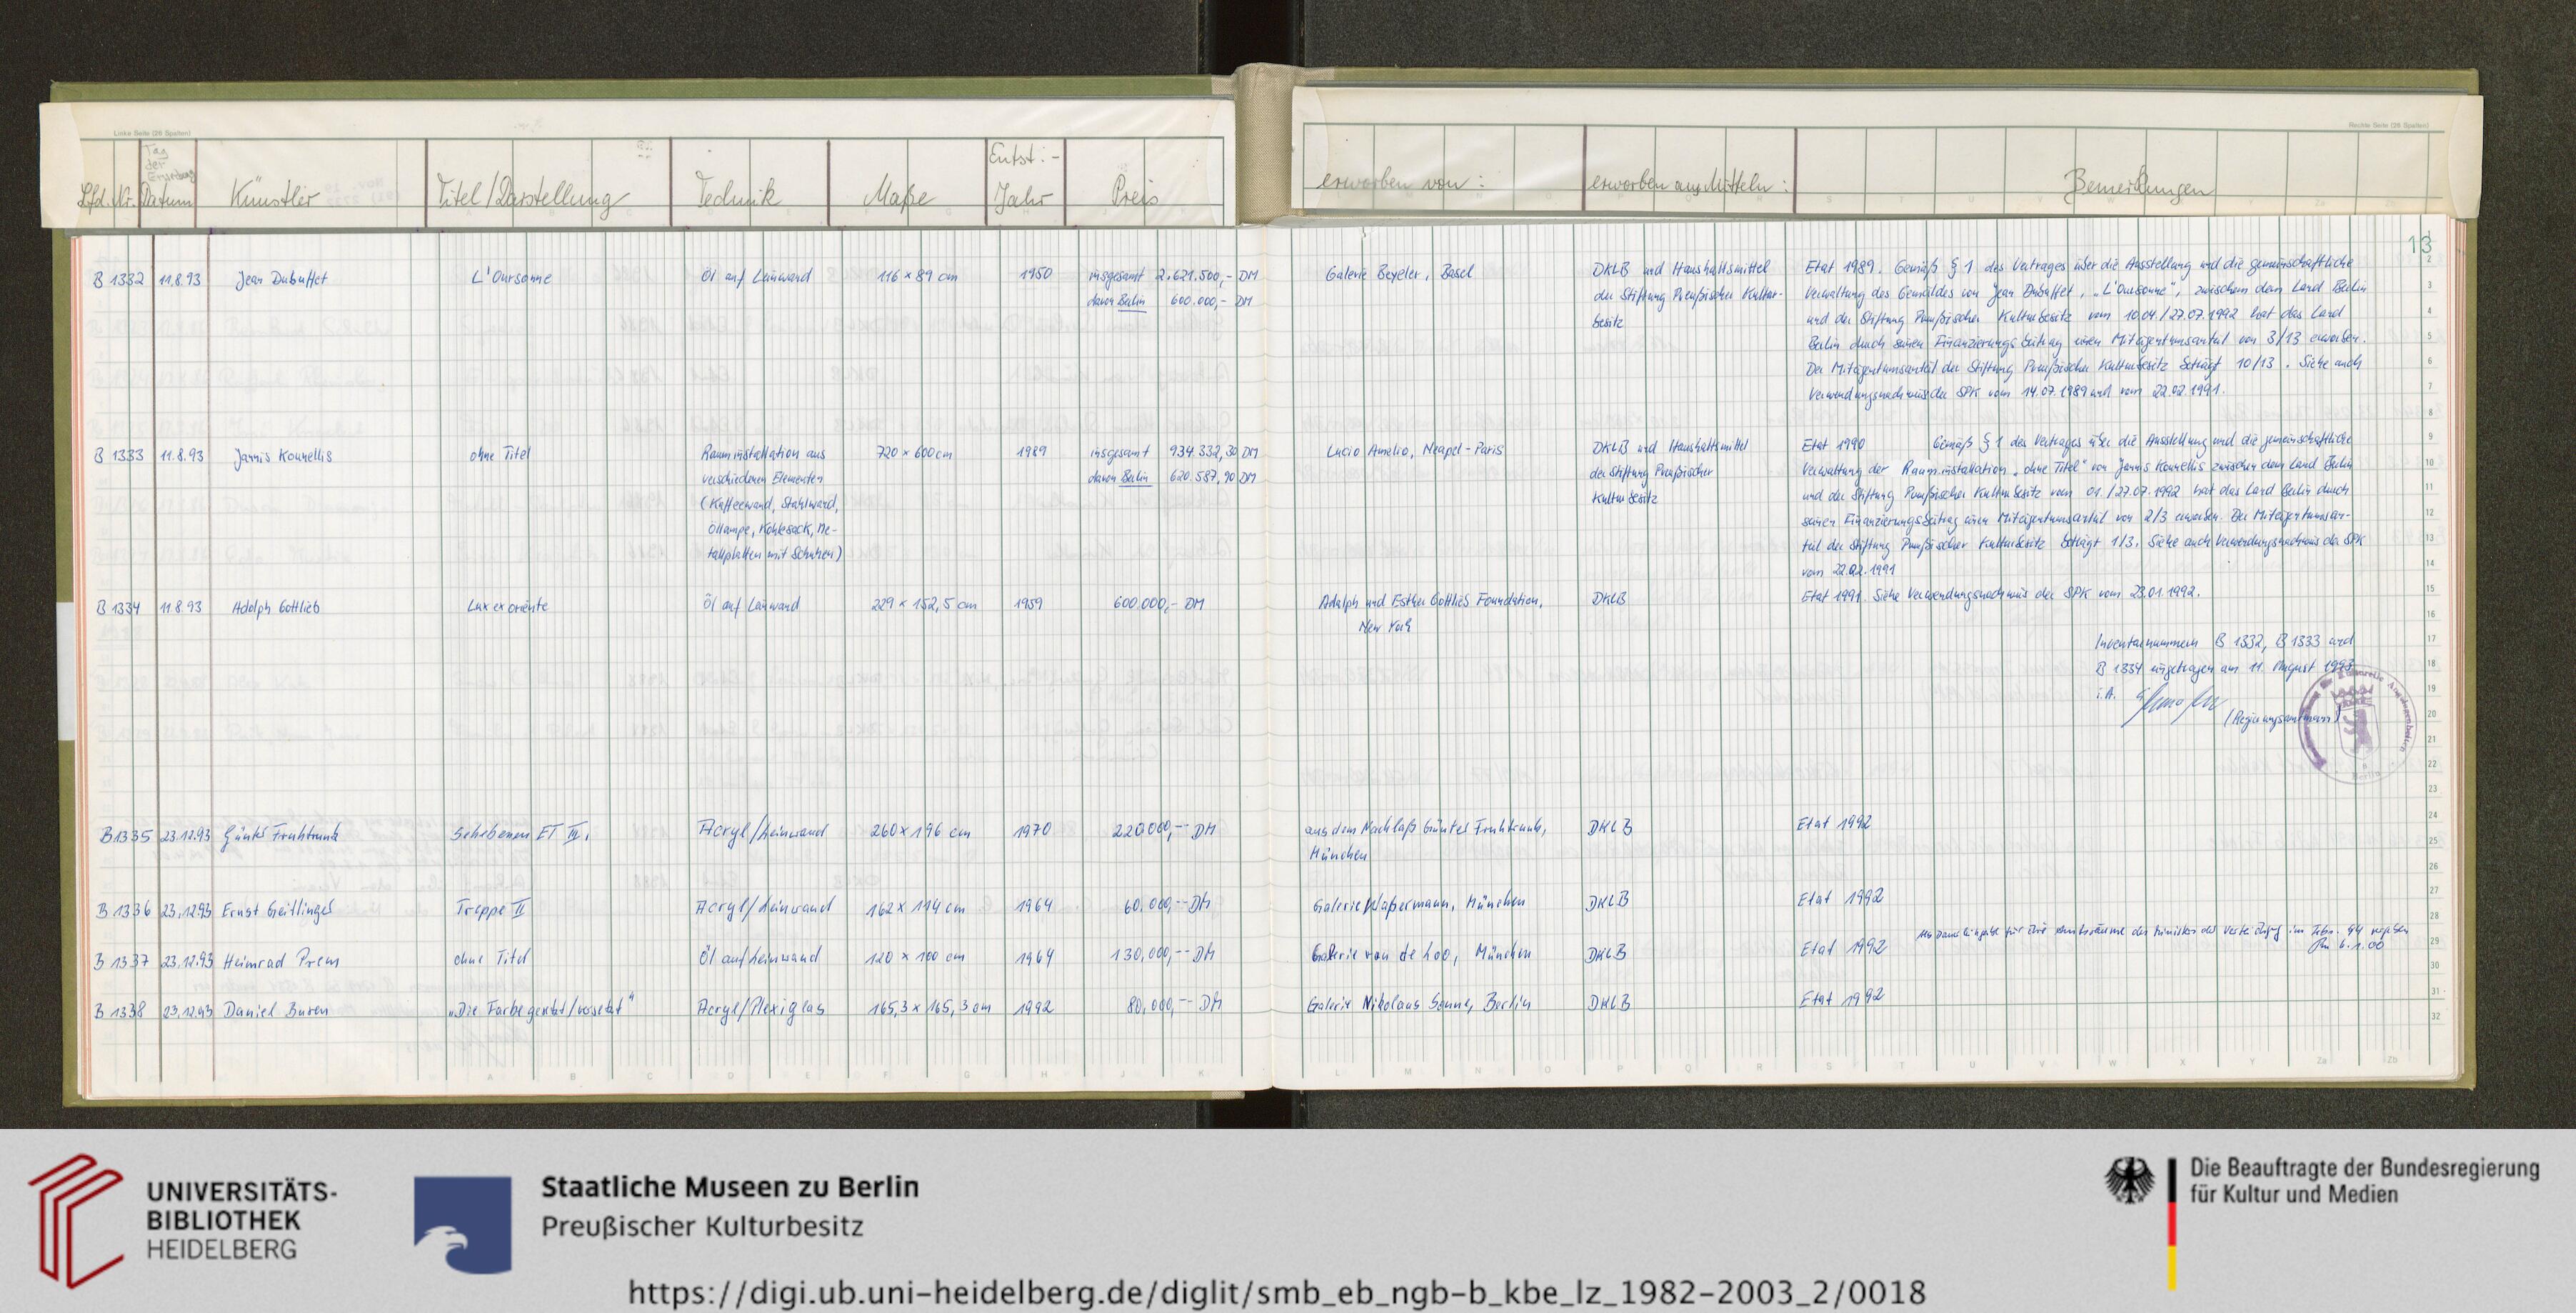 Linke Seite (26 Spalten)
Rechte Seite (26 Spalten)
Lfd. Nr. Tag der Erwerbung Datum Künstler Titel/Darstellung Technik Maße Entst.- Jahr Preis erworben von: erworben aus Mitteln: Bemerkungen
13
B 1332 11.8.93 Jean Dubuffet L'Oursonne Öl auf Leinwand 116 × 89 cm 1950 insgesamt 2.621.500,- DM
davon Berlin 600.000,- DM
Galerie Beyeler, Basel
DKLB und Haushaltsmittel
der Stiftung Preußischer Kultur-
besitz
Etat 1989. Gemäß § 1 des Vertrages über die Ausstellung und die gemeinschaftliche
Verwaltung des Gemäldes von Jean Dubuffet, "L'Oursonne", zwischen dem Land Berlin
und der Stiftung Preußischer Kulturbesitz vom 10.04./27.07.1992 hat das Land
Berlin durch seinen Finanzierungsbeitrag einen Miteigentumsanteil von 3/13 erworben.
Der Miteigentumsanteil der Stiftung Preußischer Kulturbesitz beträgt 10/13. Siehe auch
Verwendungsnachweis der SPK vom 14.07.1989 und vom 22.02.1991.
B 1333 11.8.93 Jannis Kounellis ohne Titel Rauminstallation aus 720 × 600 cm 1989 insgesamt 934.332,30 DM
verschiedenen Elementen davon Berlin 620.587,90 DM
(Kaffeewand, Stahlwand,
Öllampe, Kohlesack, Me-
tallplatten mit Schuhen)
Lucio Amelio, Neapel-Paris
DKLB und Haushaltsmittel
der Stiftung Preußischer
Kulturbesitz
Etat 1990 Gemäß § 1 des Vertrages über die Ausstellung und die gemeinschaftliche
Verwaltung der Rauminstallation "ohne Titel" von Jannis Kounellis zwischen dem Land Berlin
und der Stiftung Preußischer Kulturbesitz vom 01./27.07.1992 hat das Land Berlin durch
seinen Finanzierungsbeitrag einen Miteigentumsanteil von 2/3 erworben. Der Miteigentumsan-
teil der Stiftung Preußischer Kulturbesitz beträgt 1/3. Siehe auch Verwendungsnachweis der SPK
vom 22.02.1991
B 1334 11.8.93 Adolph Gottlieb Lux ex oriente Öl auf Leinwand 229 × 152,5 cm 1959 600.000,- DM
Adolph und Esther Gottlieb Foundation,
New York
DKLB
Etat 1991. Siehe Verwendungsnachweis der SPK vom 23.01.1992.
Inventarnummern B 1332, B 1333 und
B 1334 eingetragen am 11. August 1993
i.A.
(Regierungsamtmann)
Berlin
B1335 23.12.93 Günter Fruhtrunk Sehebenen ET III, Acryl/Leinwand 260 × 196 cm 1970 220.000,-- DM
aus dem Nachlaß Günter Fruhtrunk,
München
DKLB
Etat 1992
B 1336 23.12.93 Ernst Geitlinger Treppe II Acryl/Leinwand 162 × 114 cm 1964 60.000,-- DM Galerie Waßermann, München DKLB Etat 1992
B 1337 23.12.93 Heimrad Prem ohne Titel Öl auf Leinwand 120 × 100 cm 1964 130.000,-- DM Galerie van de Loo, München DKLB Etat 1992
B 1338 23.12.93 Daniel Buren "Die Farbe gesetzt/versetzt" Acryl/Plexiglas 165,3 × 165,3 cm 1992 80.000,-- DM Galerie Nikolaus Sonne, Berlin DKLB Etat 1992
UNIVERSITÄTS-
BIBLIOTHEK
HEIDELBERG
Staatliche Museen zu Berlin
Preußischer Kulturbesitz
Die Beauftragte der Bundesregierung
für Kultur und Medien
https://digi.ub.uni-heidelberg.de/diglit/smb_eb_ngb-b_kbe_lz_1982-2003_2/0018